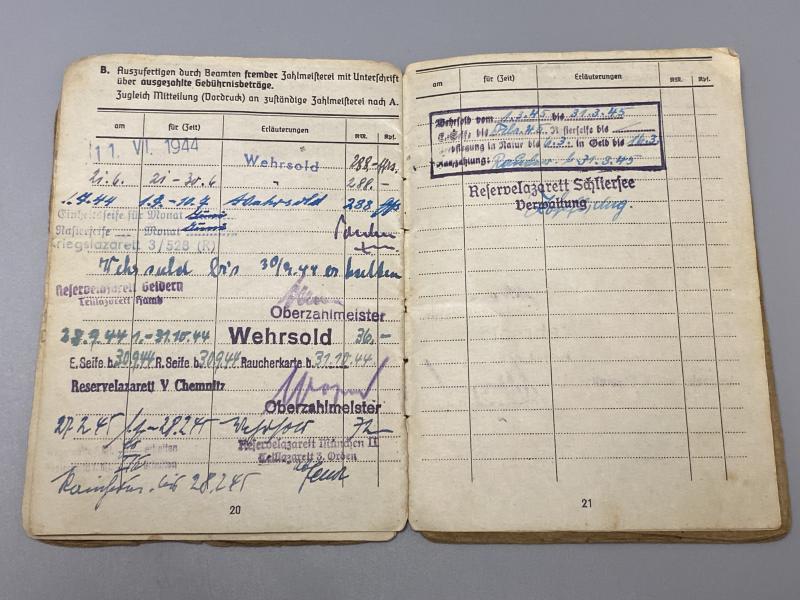 B. Auszufertigen durch Beamten fremder Zahlmeisterei mit Unterschrift
über ausgezahlte Gebührnisbeträge.
Zugleich Mitteilung (Vordruck) an zuständige Zahlmeisterei nach A.
am für (Zeit) Erläuterungen RM. Rpf.
11. VII. 1944 Wehrsold 288.-
21.6. 21-30.6 " 288.-
1.9.-10.9 Wehrsold 288
Einheitsseife für Monat Juni
Rasierseife Monat Juni
Kriegslazarett 3/528 (R)
Wehrsold bis 30/9.44 erhalten
Reservelazarett Geldern
Teillazarett
Oberzahlmeister
28.9.44 1.-31.10.44 Wehrsold 36,-
E.Seife b. 30.9.44 R.Seife b. 30.9.44 Raucherkarte b. 31.10.44
Reservelazarett V Chemnitz
Oberzahlmeister
27.2.45 -28.2.45 Wehrsold 72,-
Reservelazarett München II
Teillazarett 3. Orden
bis 28.2.45
20
am für (Zeit) Erläuterungen RM. Rpf.
Wehrsold vom 1.3.45 bis 31.3.45
E.Seife bis 45. R.Seife bis
Verpflegung in Natur bis 6.3. in Geld bis 16.3.
31.3.45
Reservelazarett Schliersee
Verwaltung
21